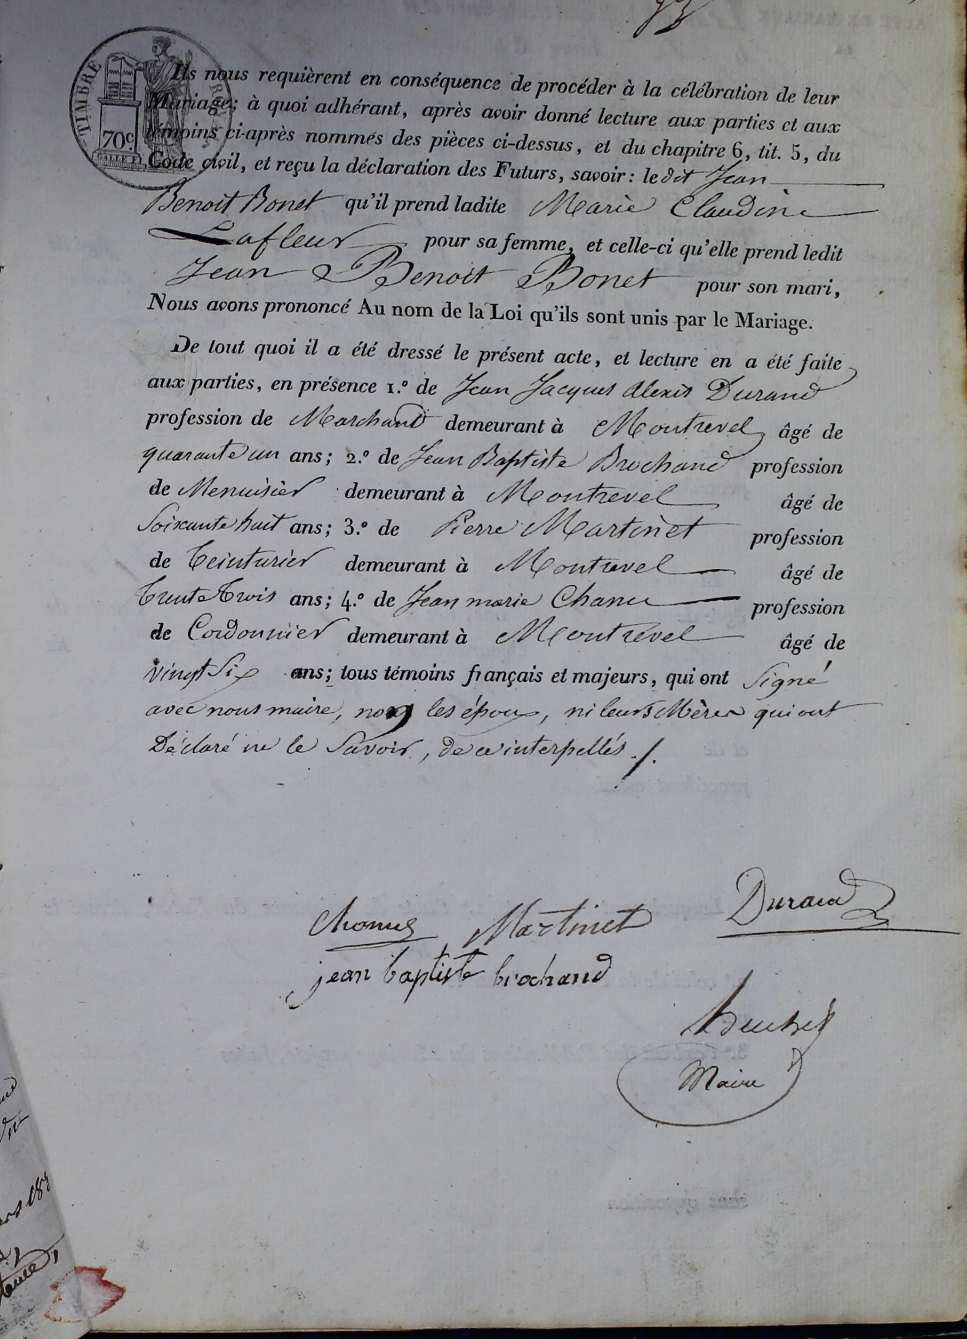 TIMBRE ROYAL
70c.
Ils nous requièrent en conséquence de procéder à la célébration de leur
Mariage; à quoi adhérant, après avoir donné lecture aux parties et aux
témoins ci-après nommés des pièces ci-dessus, et du chapitre 6, tit. 5, du
Code civil, et reçu la déclaration des Futurs, savoir: le dit Jean
Benoit Bonet qu'il prend ladite Marie Claudine
Lafleur pour sa femme, et celle-ci qu'elle prend ledit
Jean Benoit Bonet pour son mari,
Nous avons prononcé Au nom de la Loi qu'ils sont unis par le Mariage.
De tout quoi il a été dressé le présent acte, et lecture en a été faite
aux parties, en présence 1.° de Jean Jacques Alexis Durand
profession de Marchand demeurant à Montrevel âgé de
quarante un ans; 2.° de Jean Baptiste Brochand profession
de Menuisier demeurant à Montrevel âgé de
Soixante huit ans; 3.° de Pierre Martinet profession
de Teinturier demeurant à Montrevel âgé de
Trente Trois ans; 4.° de Jean marie Chanu profession
de Cordonnier demeurant à Montrevel âgé de
vingt Six ans; tous témoins français et majeurs, qui ont Signé
avec nous maire, non les époux, ni leurs Mères qui ont
Déclaré ne le Savoir, de ce interpellés ./.
Durand
Martinet
jean baptiste brochand
Maire